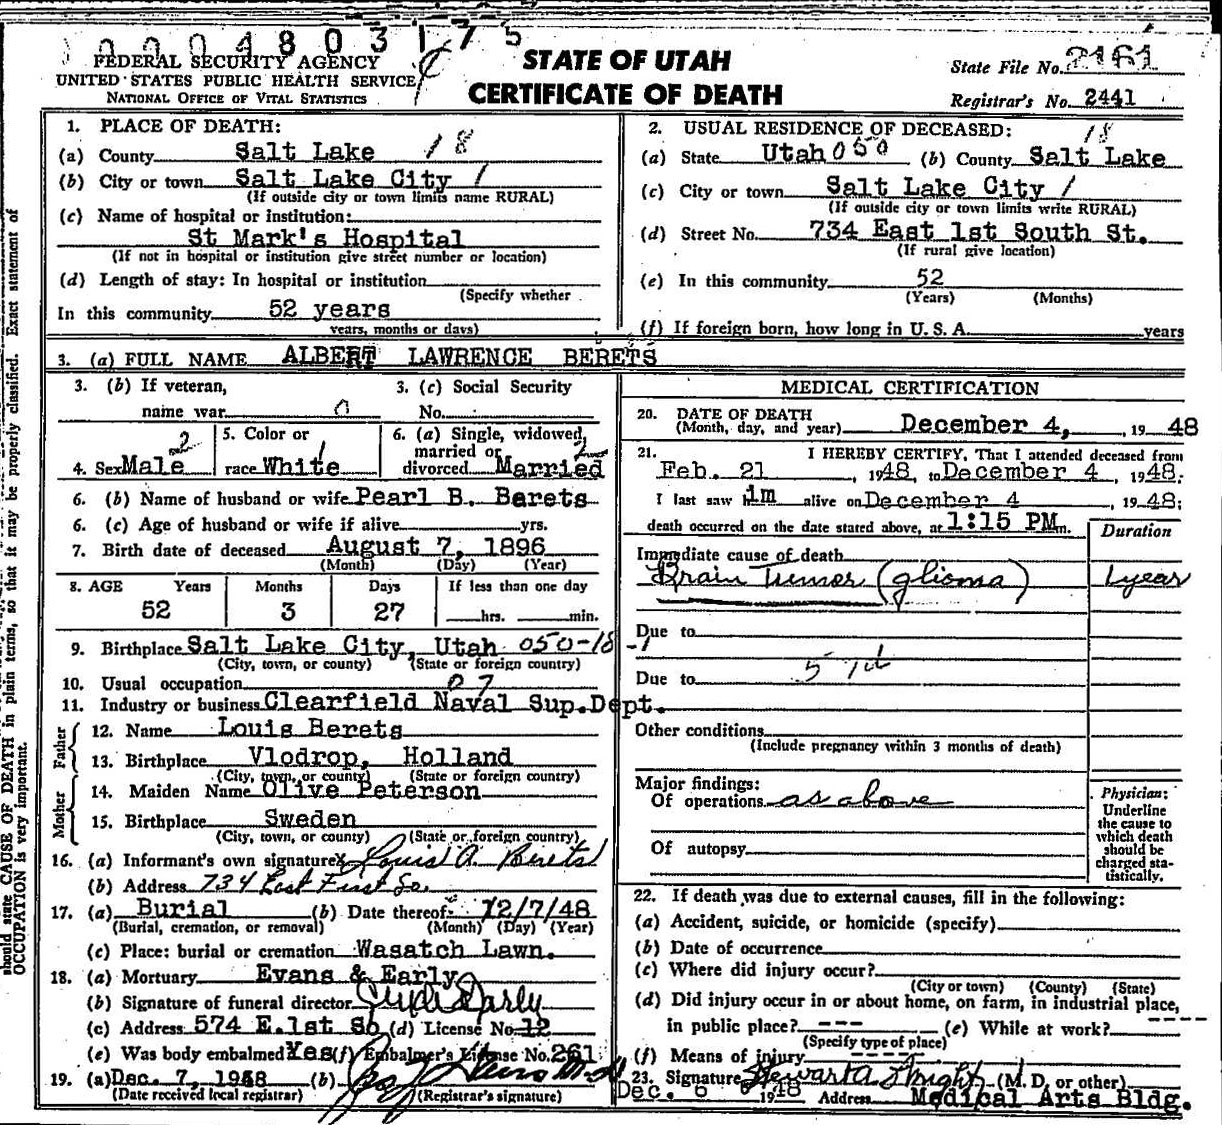 0004803175
FEDERAL SECURITY AGENCY
UNITED STATES PUBLIC HEALTH SERVICE
NATIONAL OFFICE OF VITAL STATISTICS
STATE OF UTAH
CERTIFICATE OF DEATH
State File No. 2161
Registrar's No. 2441
1. PLACE OF DEATH:
(a) County Salt Lake 18
(b) City or town Salt Lake City 1
(If outside city or town limits name RURAL)
(c) Name of hospital or institution:
St Mark's Hospital
(If not in hospital or institution give street number or location)
(d) Length of stay: In hospital or institution
(Specify whether
In this community 52 years
years, months or days)
2. USUAL RESIDENCE OF DECEASED: 18
(a) State Utah 050 (b) County Salt Lake
(c) City or town Salt Lake City 1
(If outside city or town limits write RURAL)
(d) Street No. 734 East 1st South St.
(If rural give location)
(e) In this community 52
(Years) (Months)
(f) If foreign born, how long in U. S. A. years
3. (a) FULL NAME ALBERT LAWRENCE BERETS
3. (b) If veteran,
name war 0
3. (c) Social Security
No.
4. Sex Male 2
5. Color or
race White 1
6. (a) Single, widowed,
married or 2
divorced Married
6. (b) Name of husband or wife Pearl B. Berets
6. (c) Age of husband or wife if alive yrs.
7. Birth date of deceased August 7, 1896
(Month) (Day) (Year)
8. AGE Years Months Days If less than one day
52 3 27 hrs. min.
9. Birthplace Salt Lake City, Utah 050-18 -1
(City, town, or county) (State or foreign country)
10. Usual occupation 07
11. Industry or business Clearfield Naval Sup.Dept.
Father
12. Name Louis Berets
13. Birthplace Vlodrop, Holland
(City, town, or county) (State or foreign country)
Mother
14. Maiden Name Olive Peterson
15. Birthplace Sweden
(City, town, or county) (State or foreign country)
16. (a) Informant's own signature X Louis A. Berets
(b) Address 734 East First So.
17. (a) Burial (b) Date thereof 12/7/48
(Burial, cremation, or removal) (Month) (Day) (Year)
(c) Place: burial or cremation Wasatch Lawn.
18. (a) Mortuary Evans & Early
(b) Signature of funeral director Clyde Early
(c) Address 574 E.1st So (d) License No. 12
(e) Was body embalmed Yes (f) Embalmer's License No. 261
19. (a) Dec. 7, 1948 (b)
(Date received local registrar) (Registrar's signature)
MEDICAL CERTIFICATION
20. DATE OF DEATH
(Month, day, and year) December 4, 19 48
21. I HEREBY CERTIFY, That I attended deceased from
Feb. 21, 1948, to December 4, 1948;
I last saw him alive on December 4, 1948;
death occurred on the date stated above, at 1:15 PM m.
Duration
Immediate cause of death
Brain Tumor (glioma) 1 year
Due to
57d
Due to
Other conditions
(Include pregnancy within 3 months of death)
Major findings:
Of operations as above
Of autopsy
Physician:
Underline
the cause to
which death
should be
charged sta-
tistically.
22. If death was due to external causes, fill in the following:
(a) Accident, suicide, or homicide (specify)
(b) Date of occurrence
(c) Where did injury occur?
(City or town) (County) (State)
(d) Did injury occur in or about home, on farm, in industrial place,
in public place? --- (e) While at work? ----
(Specify type of place)
(f) Means of injury ----
23. Signature Stewart A Wright (M. D. or other)
Dec. 6 1948 Address Medical Arts Bldg.
should state CAUSE OF DEATH in plain terms, so that it may be properly classified. Exact statement of
OCCUPATION is very important.